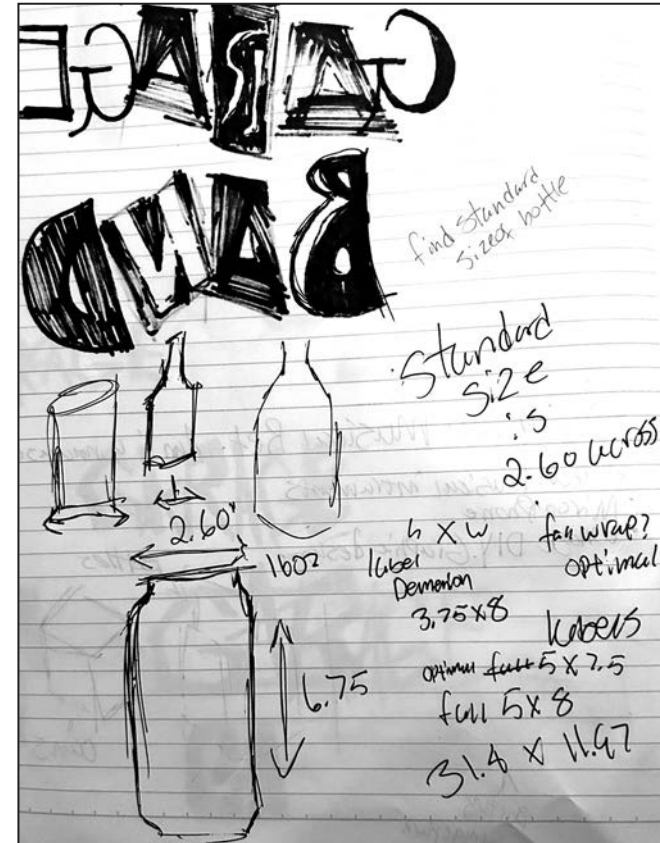 GARAGE
BAND
find standard
size of bottle
Standard
size
is
2.60 across
2.60"
16oz
h x w
label
3.75x8
full wrap?
optimal
6.75
labels
optimal full 5 x 7.5
full 5x8
31.4 x 11.97